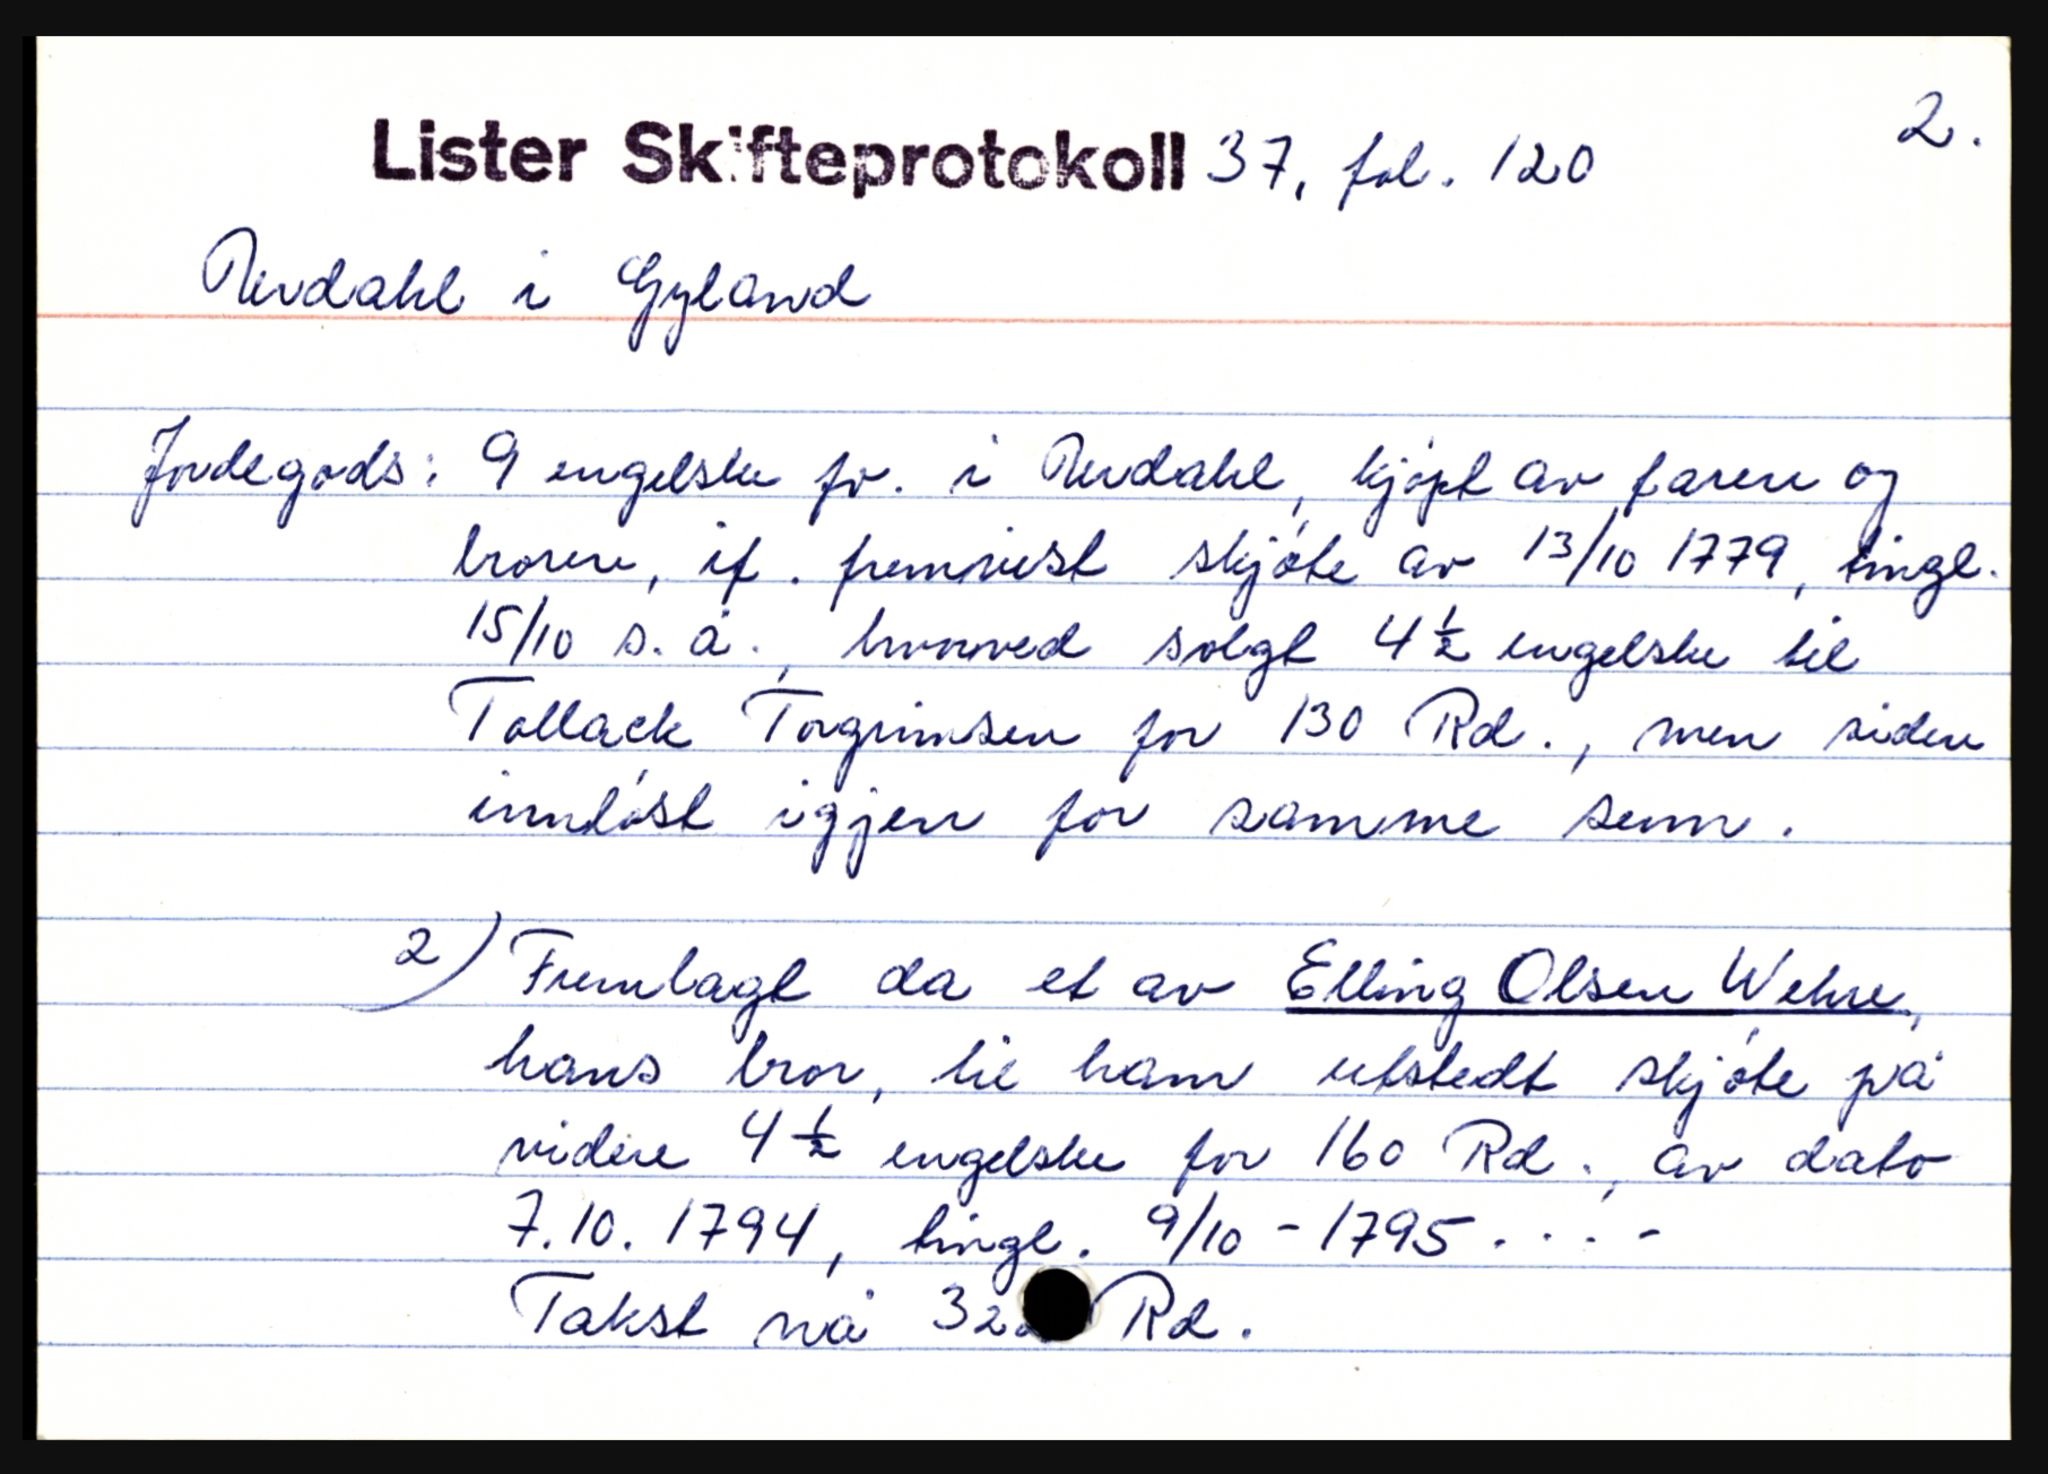 2.
Lister Skifteprotokoll 37, fol. 120
Nerdahl i Gyland
Jordegods: 9 engelske fv. i Nerdahl, kjöpt av faren og
broren, if. fremvist skjöte av 13/10 1779, tingl.
15/10 s. å., hvorved solgt 4 ½ engelske til
Tollack Torgrimsen for 130 Rd., men siden
innlöst igjen for samme sum.
2) Fremlagt da et av Elling Olsen Wehre,
hans bror, til ham utstedt skjöte på
videre 4 ½ engelske for 160 Rd., av dato
7.10. 1794, tingl. 9/10 - 1795 . . . . -
Takst nå 32 Rd.